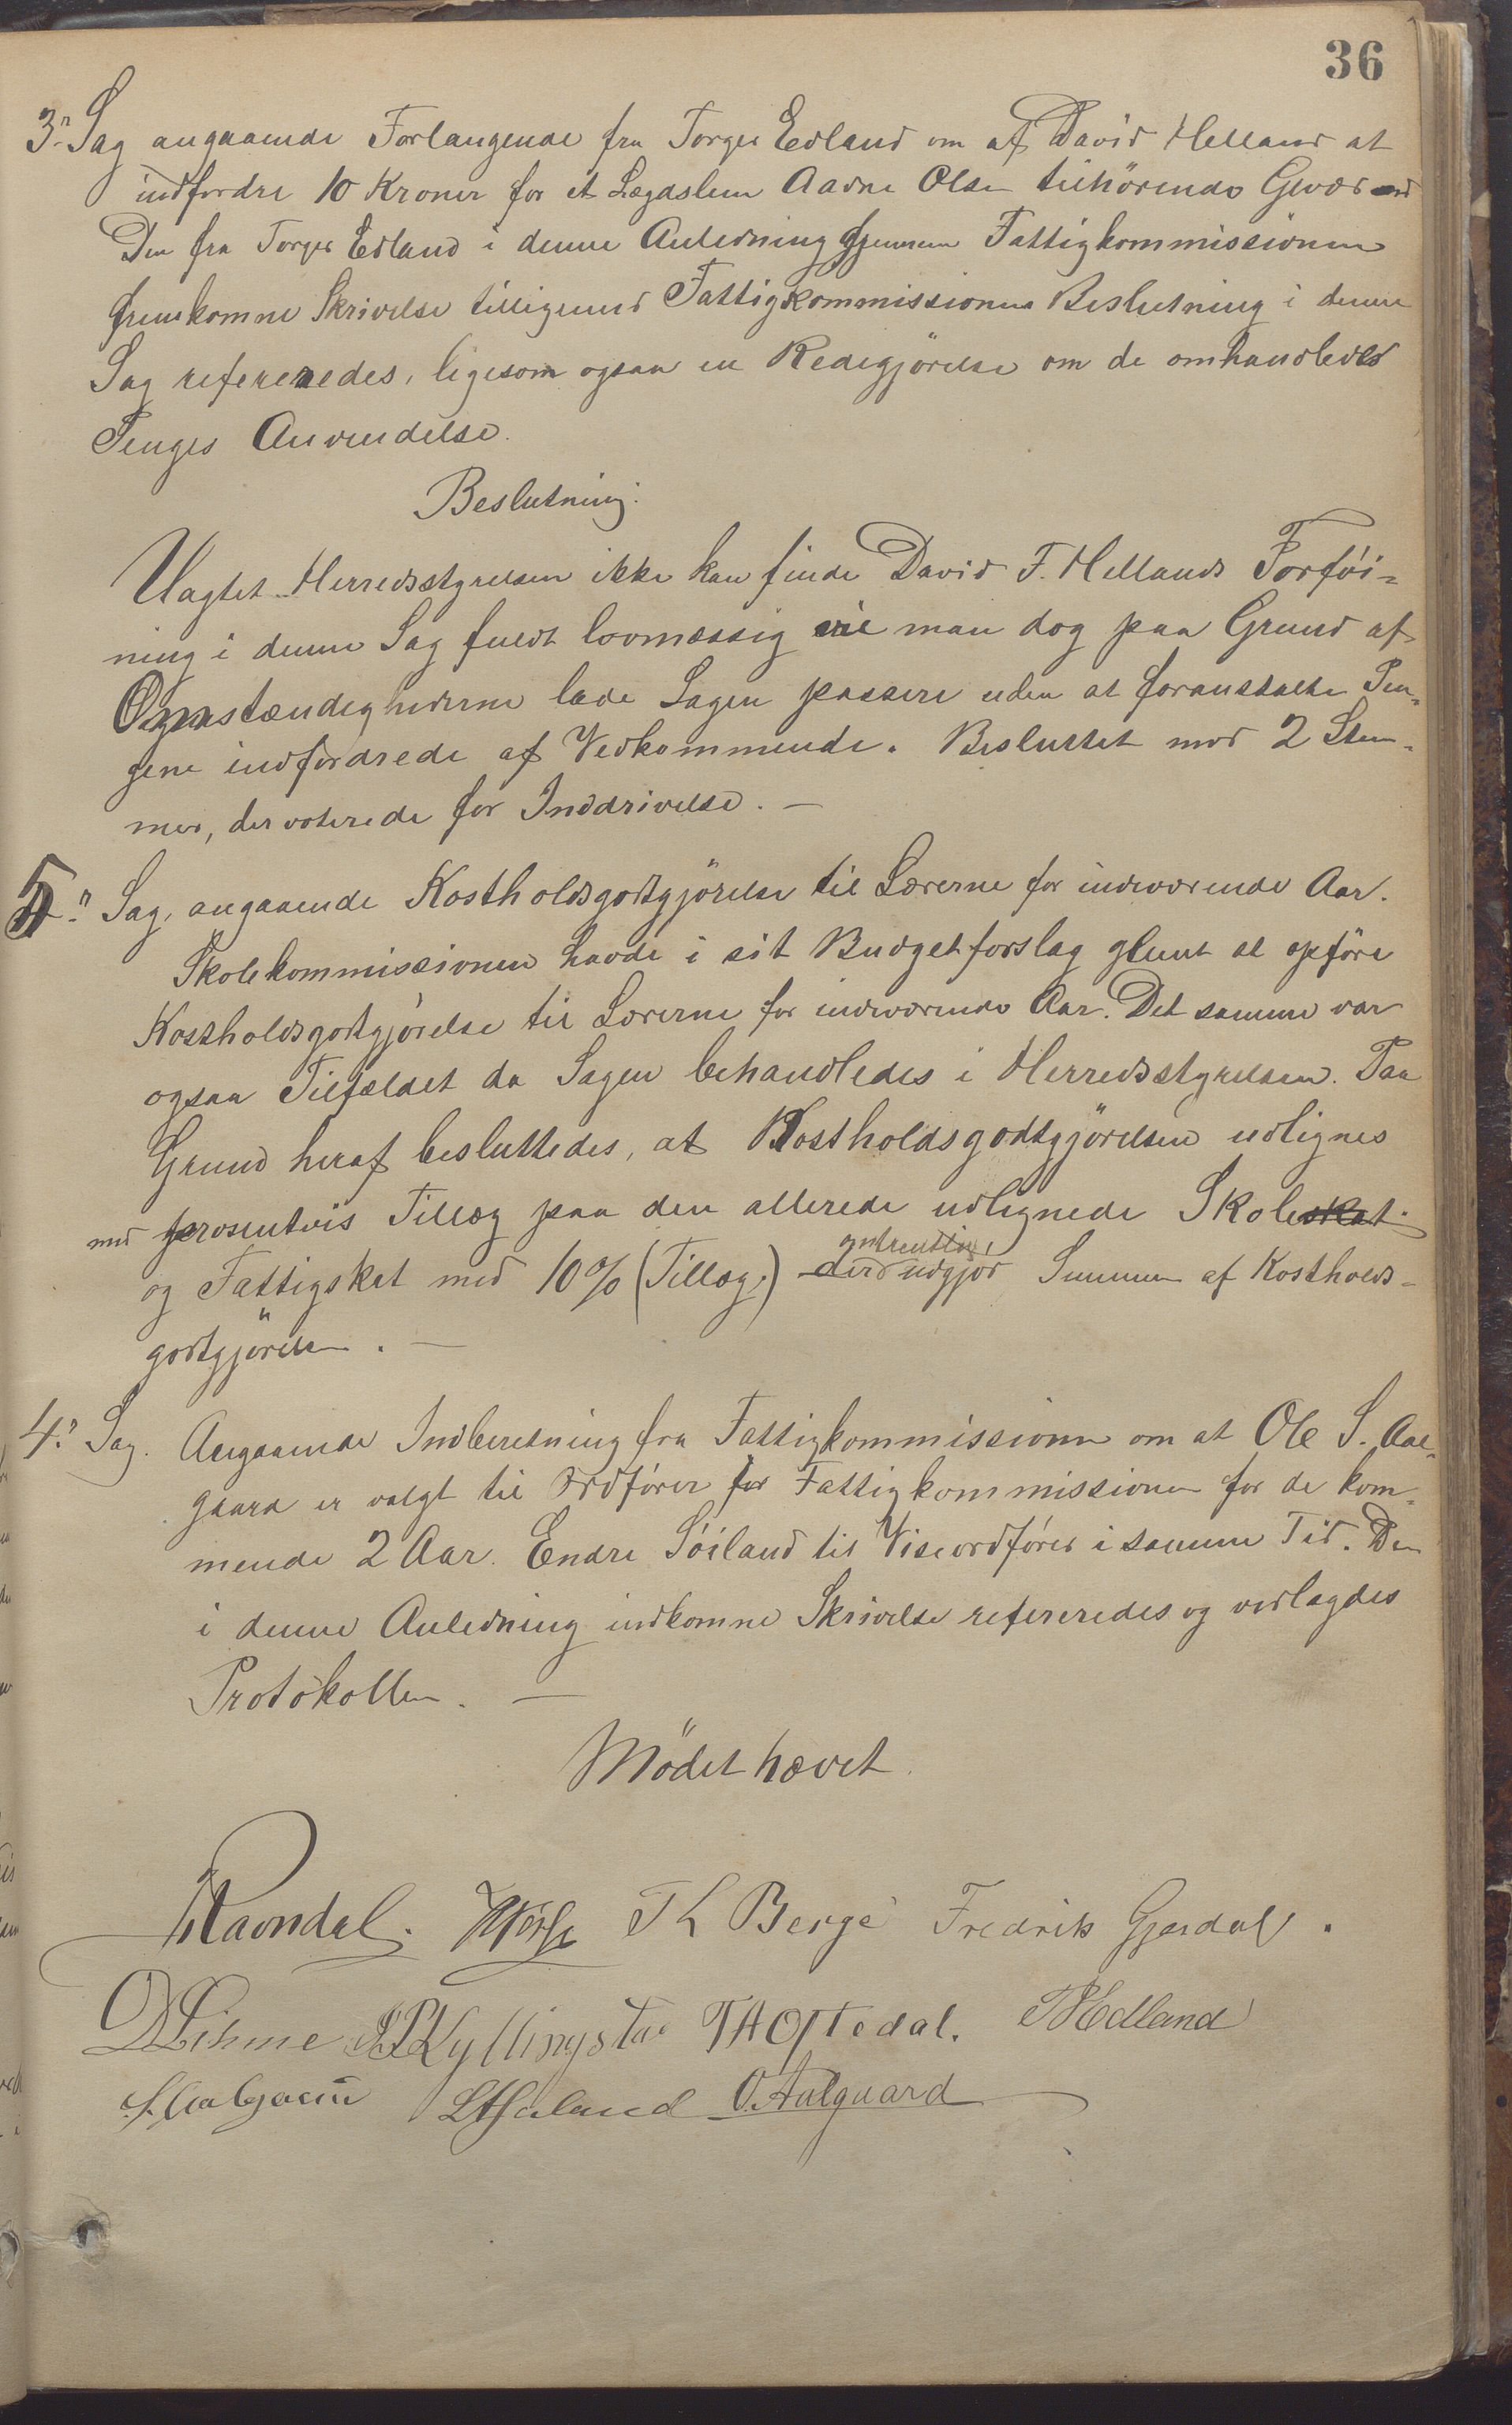 36
3die Sag angaaende Forlangende fra Torger Edland om af David Helland at
indfordre 10 Kroner for et Lægdslem Aadne Olsen tilhörende Gevær
Den fra Torger Edland i denne Anledning gjennem Fattigkommissionen
fremkomne Skrivelse tilligemed Fattigkommissionens Beslutning i denne
Sag refereredes, ligesom ogsaa en Redegjörelse om de omhandlede
Penges Anvendelse.
Beslutning.
Uagtet Herredsstyrelsen ikke kan finde David F. Hellands Forföi-
ning i denne Sag fuldt lovmæssig vil man dog paa Grund af
Omstændighederne lade Sagen passere uden at foranstalte Pen-
gene indfordrede af Vedkommende. Besluttet mod 2 Stem-
mer, der voterede for Inddrivelse. —
5. Sag, angaaende Kostholdsgodtgjörelse til Lærerne for indeværende Aar.
Skolekommissionen havde i sit Budgetforslag glemt at opföre
Kostholdsgodtgjörelse til Lærerne for indeværende Aar. Det samme var
ogsaa Tilfældet da Sagen behandledes i Herredsstyrelsen. Paa
Grund heraf besluttedes, at Kostholdsgodtgjörelsen udlignes
med prosentvis Tillæg paa den allerede udlignede Skoleskat
og Fattigskat med 10% (Tillæg.) der omtrentlig udgjör Summen af Kostholds-
godtgjörelsen. —
4. Sag. Angaaende Indberetning fra Fattigkommissionen om at Ole S. Aal-
gaard er valgt til Ordförer for Fattigkommissionen for de kom-
mende 2 Aar. Endre Söiland til Viseordförer i samme Tid. Den
i denne Anledning indkomne Skrivelse refereredes og vedlagdes
Protokollen. —
Mödet hævet.
Ravndal. T K Berge Fredrik Gjesdal.
D Lihme S R Kyllingstad T A Oftedal. T Hedland
S. Aalgaard O. Aalgaard